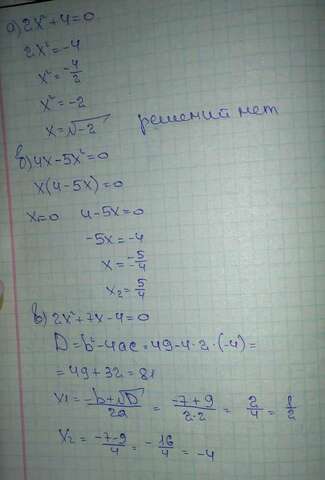 а) 2x²+4=0.
2x²=-4
x²=-4/2
x²=-2
x=√-2 решений нет
б) 4x-5x²=0
x(4-5x)=0
x=0 4-5x=0
-5x=-4
x=-5/-4
x₂=5/4
в) 2x²+7x-4=0
D=b²-4ac=49-4·2·(-4)=
=49+32=81
x1=-b+√D/2a=-7+9/2·2=2/4=1/2
x₂=-7-9/4=-16/4=-4